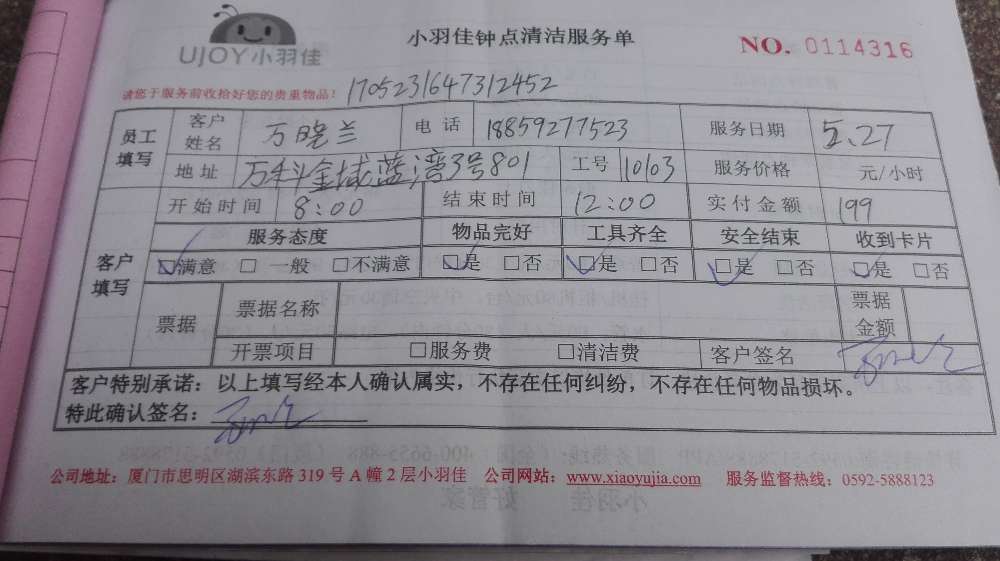 UJOY小羽佳
小羽佳钟点清洁服务单
NO. 0114316
请您于服务前收拾好您的贵重物品！ 1705231647312452
员工填写 客户姓名 万晓兰 电话 18859277523 服务日期 5.27
地址 万科金域蓝湾3号801 工号 10103 服务价格 元/小时
开始时间 8:00 结束时间 12:00 实付金额 199
客户填写 服务态度 物品完好 工具齐全 安全结束 收到卡片
☑满意 □一般 □不满意 ☑是 □否 ☑是 □否 ☑是 □否 ☑是 □否
票据 票据名称 票据金额
开票项目 □服务费 □清洁费 客户签名
客户特别承诺：以上填写经本人确认属实，不存在任何纠纷，不存在任何物品损坏。
特此确认签名：
公司地址：厦门市思明区湖滨东路 319 号 A 幢 2 层小羽佳 公司网站：www.xiaoyujia.com 服务监督热线：0592-5888123